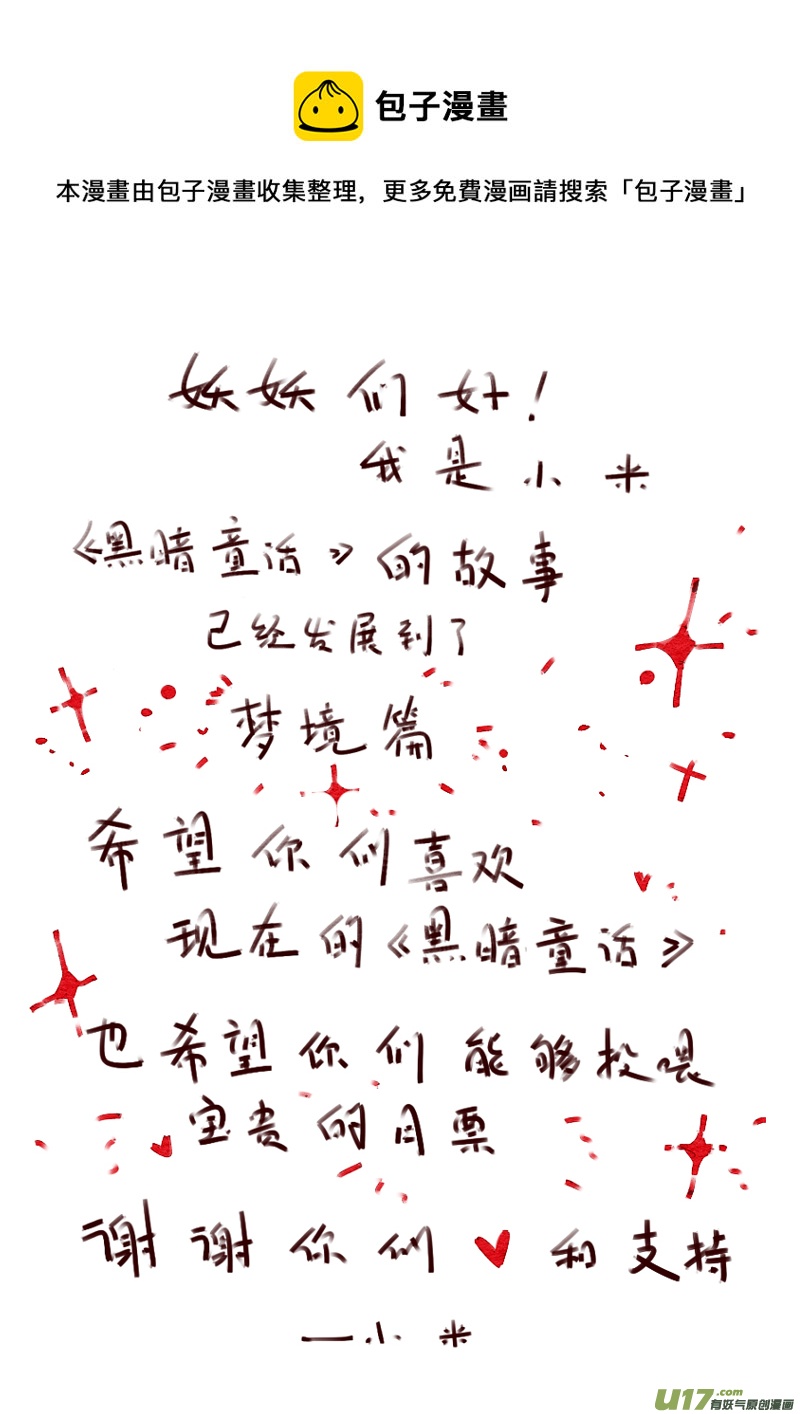 包子漫畫
本漫畫由包子漫畫收集整理，更多免費漫画請搜索「包子漫畫」
妖妖们好！
我是小米
《黑暗童话》的故事
已经发展到了
梦境篇
希望你们喜欢
现在的《黑暗童话》
也希望你们能够投喂
宝贵的月票
谢谢你们❤和支持
——小米
U17.com
有妖气原创漫画